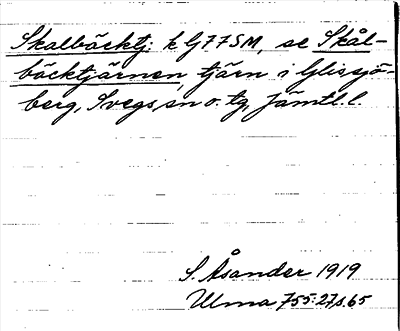 Skalbäcktj: k G77SM, se Skål-
bäcktjärnen, tjärn i Glissjö-
berg, Svegs sn o. tg, Jämtl. l.
S. Åsander 1919
Ulma 755:27, s. 65